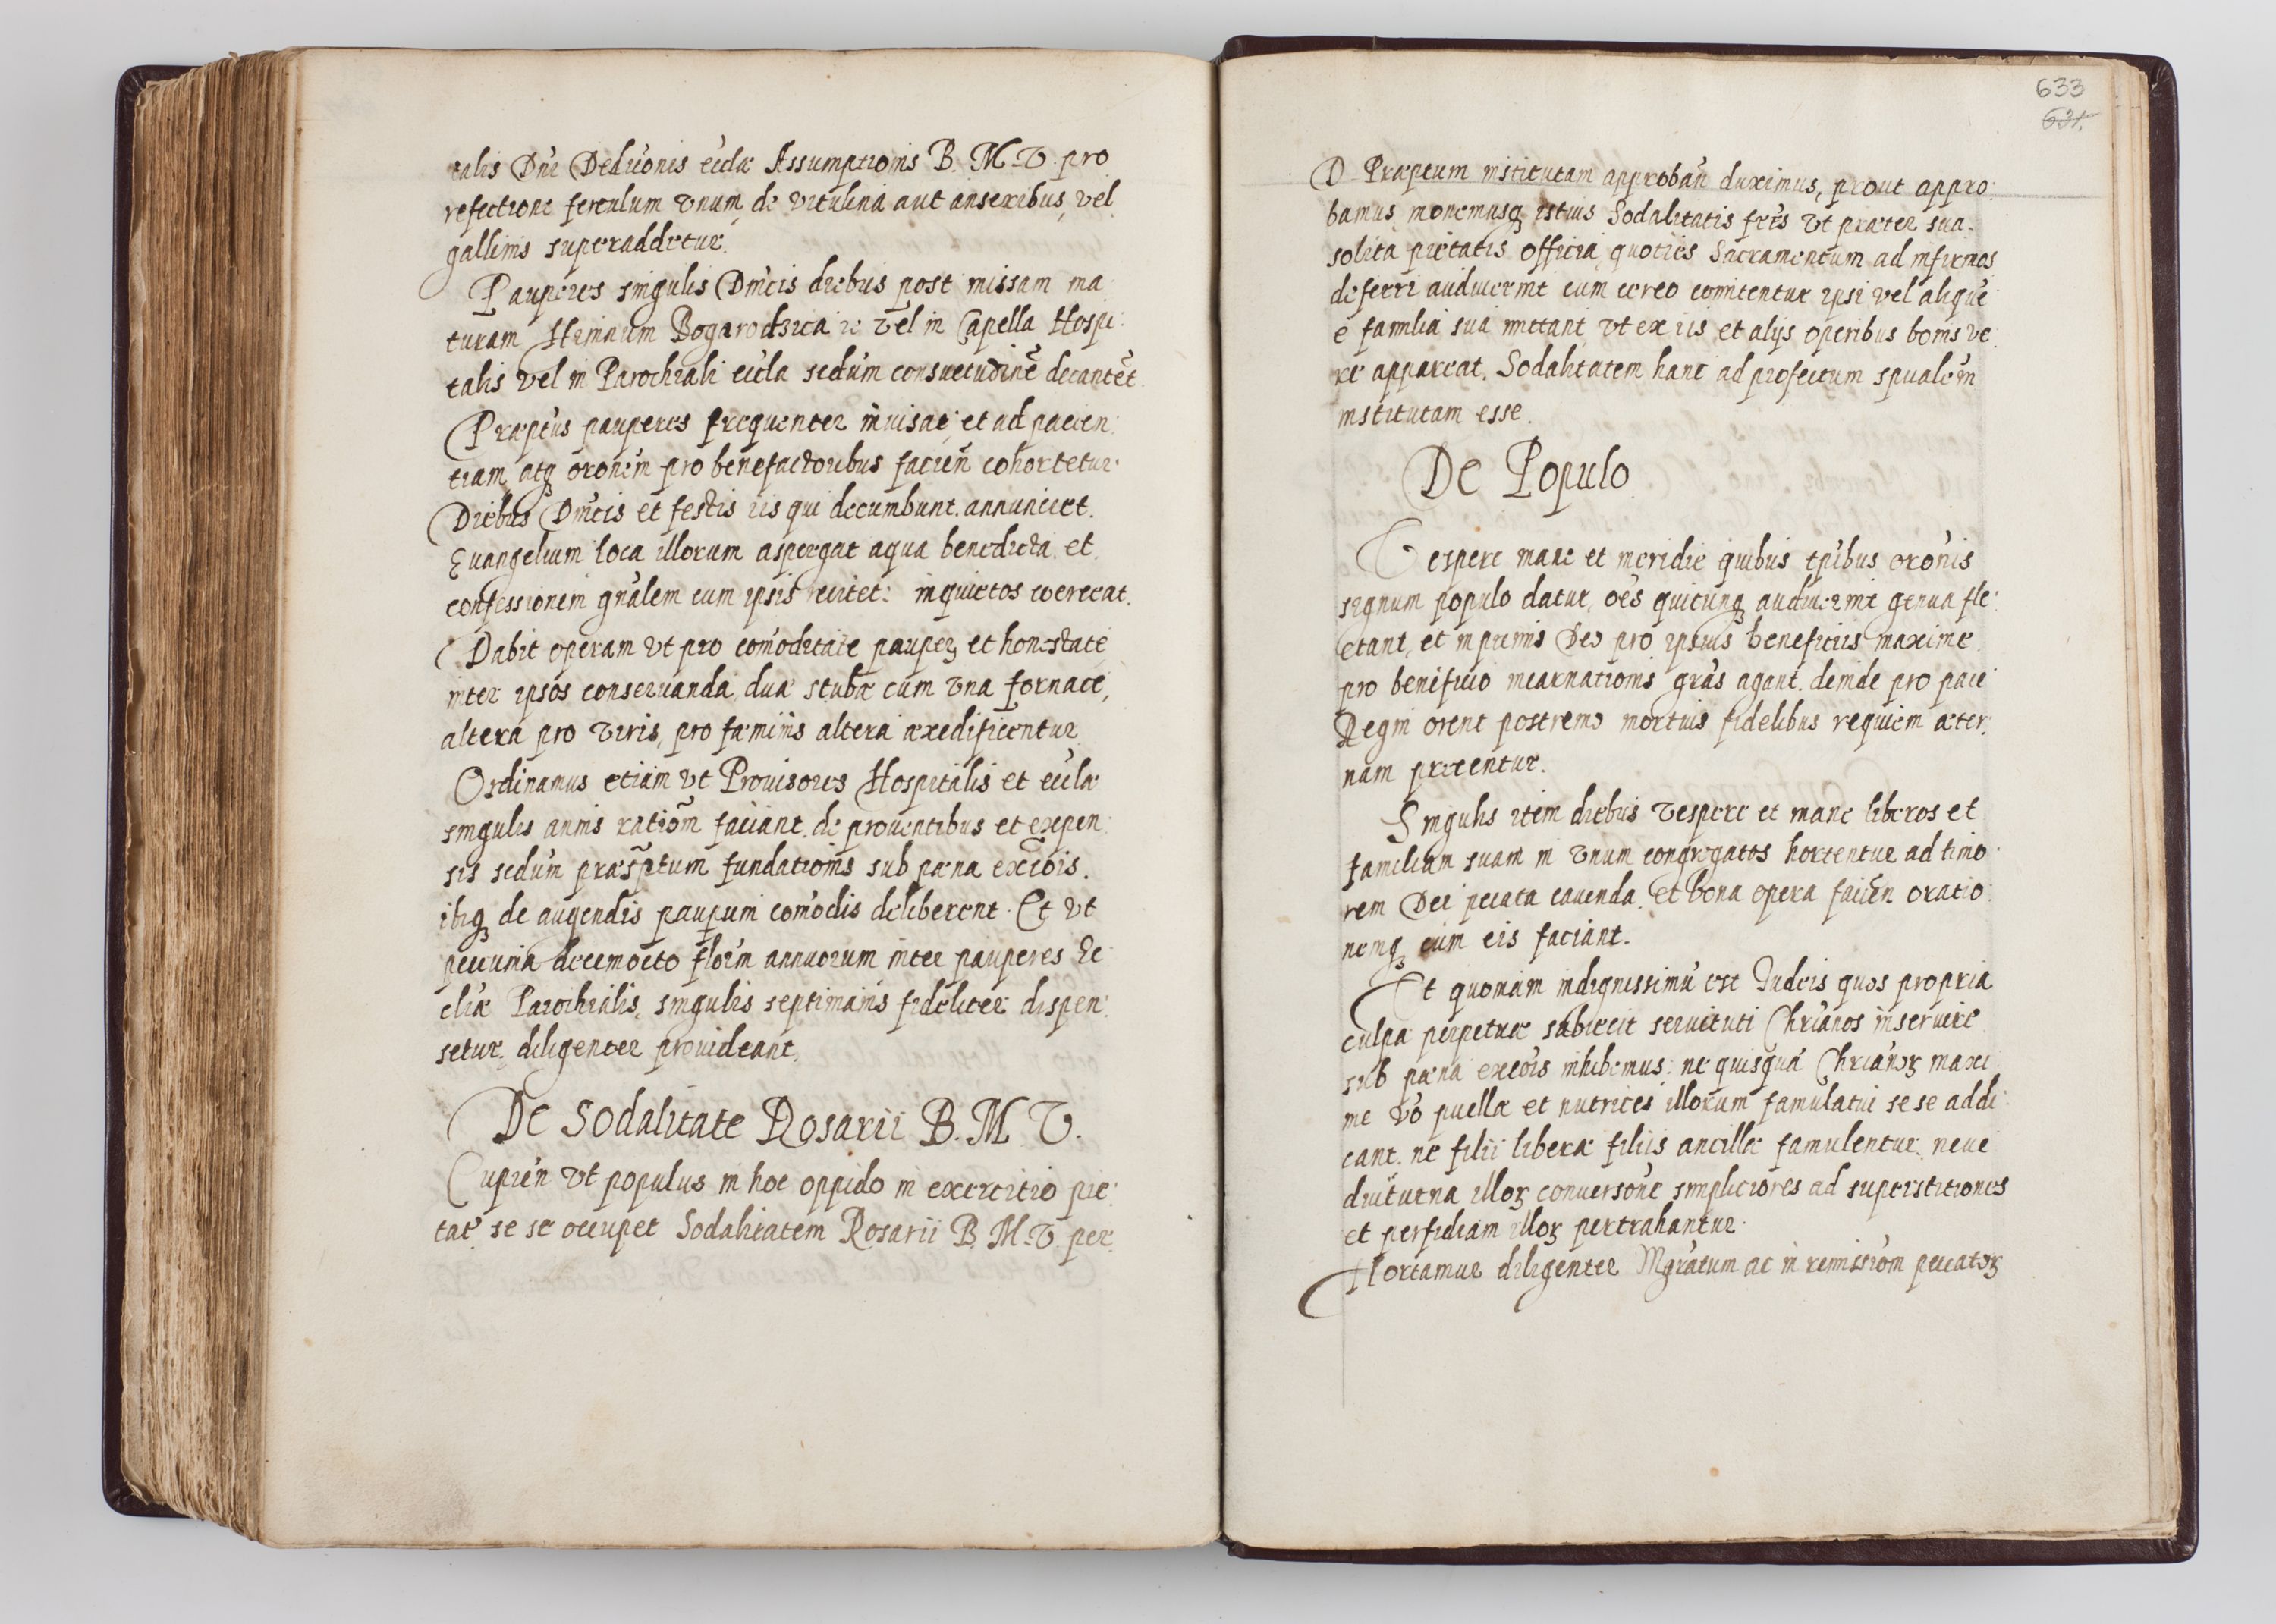 talis Dni Deduonis eccla Assumptionis B. M. V. pro
refectione ferculum vnum de vitulina aut anseribus, vel
gallinis superaddetur.
Pauperes singulis Dnicis diebus post missam ma
turam Himnum Bogarodzica vel in Capella Hospi:
talis vel in Parochiali eccla sedum consuetudinẽ decantẽt
Præptus pauperes frequenter inuisat, et ad pacien:
tiam atq oronem pro benefactoribus facien cohortetur.
Diebus Dnicis et festis iis qui decumbunt annunciet
Euangelium loca illorum aspergat aqua benedicta et
confessionem gnalem cum ipsis recitet: inquietos coerceat.
Dabit operam vt pro comoditate pauperꝫ et honestate
inter ipsos conseruanda, duæ stubæ cum vna fornace,
altera pro viris, pro fæminis altera exedificentur
Ordinamus etiam vt Prouisores Hospitalis et ecclæ
singulis annis rationẽ faciant de prouentibus et expen:
sis sedum præscptum fundationis sub pæna excõis.
ibiq de augendis paupum comodis deliberent. Et vt
pecunia decemocto florm annuorum inter pauperes Ec
cliæ Parochialis, singulis septimanis fideliter dispen:
setur, diligenter prouideant.
De Sodalitate Rosarii B. M. V.
Cupien vt populus in hoc oppido in exercitio pie:
tatẽ se se occupet Sodalitatem Rosarii B. M. V. per
633
631.
D Præptum institutam approban duximus, prout appro:
bamus, monemusq istius Sodalitatis fres vt præter sua
solita pietatis officia, quoties Sacramentum ad infirmos
deferri audiuerint cum cereo comitentur ipsi vel aliquẽ
e familia sua mittant, vt ex iis et alijs operibus bonis ve
re appareat, Sodalitatem hanc ad profectum spualem
institutam esse.
De Populo
Vespere mane et meridie quibus tpibus oronis
signum populo datur, oẽs quicunq audiuerint genua fle:
ctant, et inprimis Deo pro ipsius beneficiis maxime
pro beneficio incarnationis gras agant. deinde pro pace
Regni orent postremo mortuis fidelibus requiem æter:
nam precentur.
Singulis item diebus vespere et mane liberos et
familiam suam in vnum congregatos hortentur ad timo
rem Dei peccata cauenda et bona opera facien oratio:
nemq cum eis faciant.
Et quoniam indignissimũ est Iudeis quos propria
culpa perpetuæ subiecit seruituti Chrianos inseruire
sub pæna excõis inhibemus: ne quisquã Chrianoꝝ maxi
me vo puellæ et nutrices illorum famulatui se se addi:
cant. ne filii liberæ filiis ancillæ famulentur, neue
diuturna illoꝝ conuersone simpliciores ad superstitiones
et perfidiam illoꝝ pertrahantur.
Hortamur diligenter Mgratum ac in remissiom peccatoꝝ